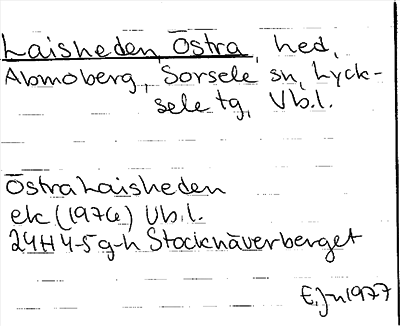 Laisheden, Östra, hed,
Abmoberg, Sorsele sn, Lyck-
sele tg, Vb.l.
Östra Laisheden
ek (1976) Vb.l.
24H 4-5 g-h Stocknäverberget
E. Jn 1977